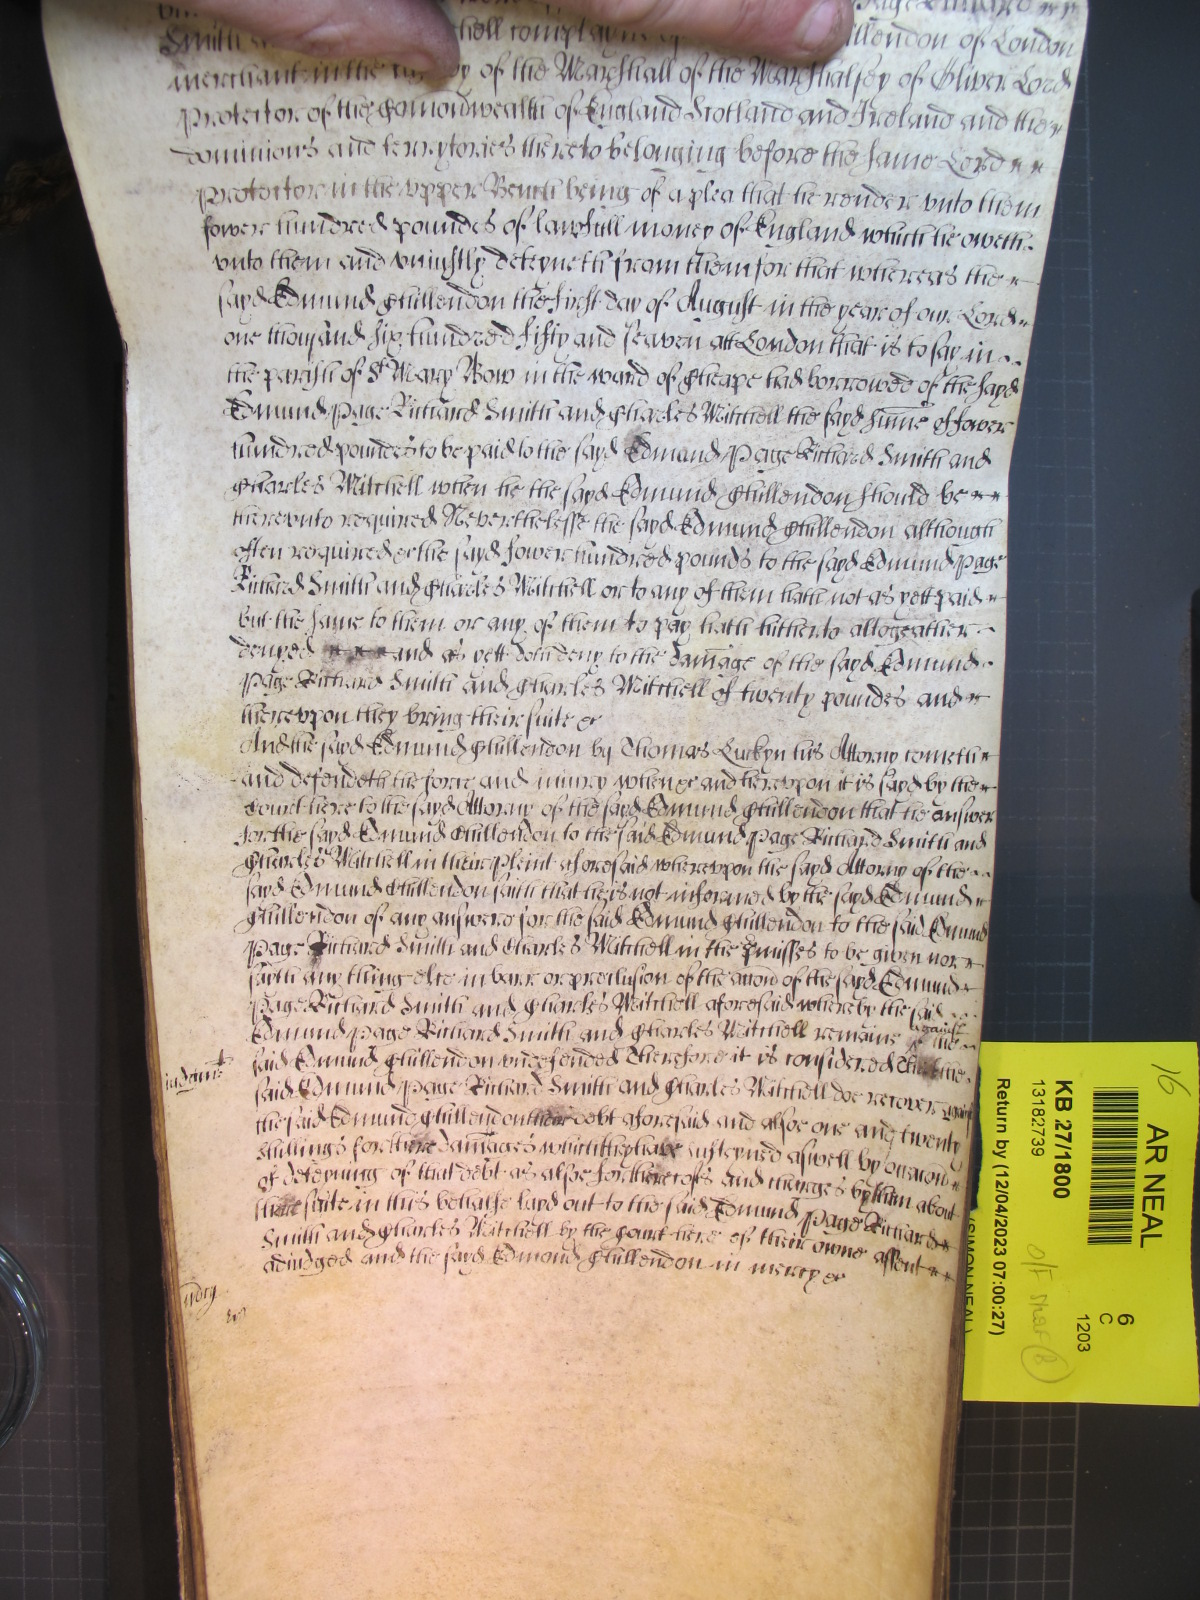 Page Edmund
Smith and chell complayne of ullendon of London
merchant in the custody of the Marshall of the Marshalsey of Oliver Lord
Protector of the Comonwealth of England Scotland and Ireland and the
dominions and terrytories thereto belonging before the same Lord
Protector in the upper Bench being of a plea that he render unto them
fower hundred poundes of lawfull money of England which he oweth
unto them and uniustly deteyneth from them for that whereas the
sayd Edmund Chillendon the first day of August in the year of our Lord
one thousand six hundred fifty and seaven att London that is to say in
the parish of St Mary Bow in the ward of Cheape had borrowed of the sayd
Edmund Page Richard Smith and Charles Mitchell the sayd sume of fower
hundred poundes to be paid to the sayd Edmund Page Richard Smith and
Charles Mitchell when he the sayd Edmund Chillendon should be
thereunto required Neverthelesse the sayd Edmund Chillendon although
often required &c the sayd fower hundred pounds to the sayd Edmund Page
Richard Smith and Charles Mitchell or to any of them hath not as yett paid
but the same to them or any of them to pay hath hitherto altogeather
denyed and as yett doth deny to the damage of the sayd Edmund
Page Richard Smith and Charles Mitchell of twenty poundes and
thereupon they bring their suite &c
And the sayd Edmund Chillendon by Thomas Luckyn his Attorny cometh
and defendeth the force and iniury when &c and hereupon it is sayd by the
Court here to the sayd Attorny of the sayd Edmund Chillendon that he answer
for the sayd Edmund Chillendon to the said Edmund Page Richard Smith and
Charles Mitchell in their pleint aforesaid whereupon the sayd Attorny of the
sayd Edmund Chillendon saith that he is not informed by the sayd Edmund
Chillendon of any answere for the said Edmund Chillendon to the said Edmund
Page Richard Smith and Charles Mitchell in the pmisses to be given nor
sayth any thing else in barr or preclusion of the accon of the sayd Edmund
Page Richard Smith and Charles Mitchell aforesaid whereby the said
Edmund Page Richard Smith and Charles Mitchell remaine against the
said Edmund Chillendon undefended Therefore it is considered that the
iudgmt
said Edmund Page Richard Smith and Charles Mitchell doe recover against
the said Edmund Chillendon their debt aforesaid and alsoe one and twenty
shillings for their damages which they have susteyned aswell by occacon
of deteyning of that debt as alsoe for their costs and charges by them about
their suite in this behalfe layd out to the said Edmund Page Richard
Smith and Charles Mitchell by the Court here of their owne assent
adiudged and the sayd Edmond Chillendon in mercy &c
mercy
16
AR NEAL
KB 27/1800
13182739
Return by (12/04/2023 07:00:27)
(SIMON NEAL)
6
C
1203